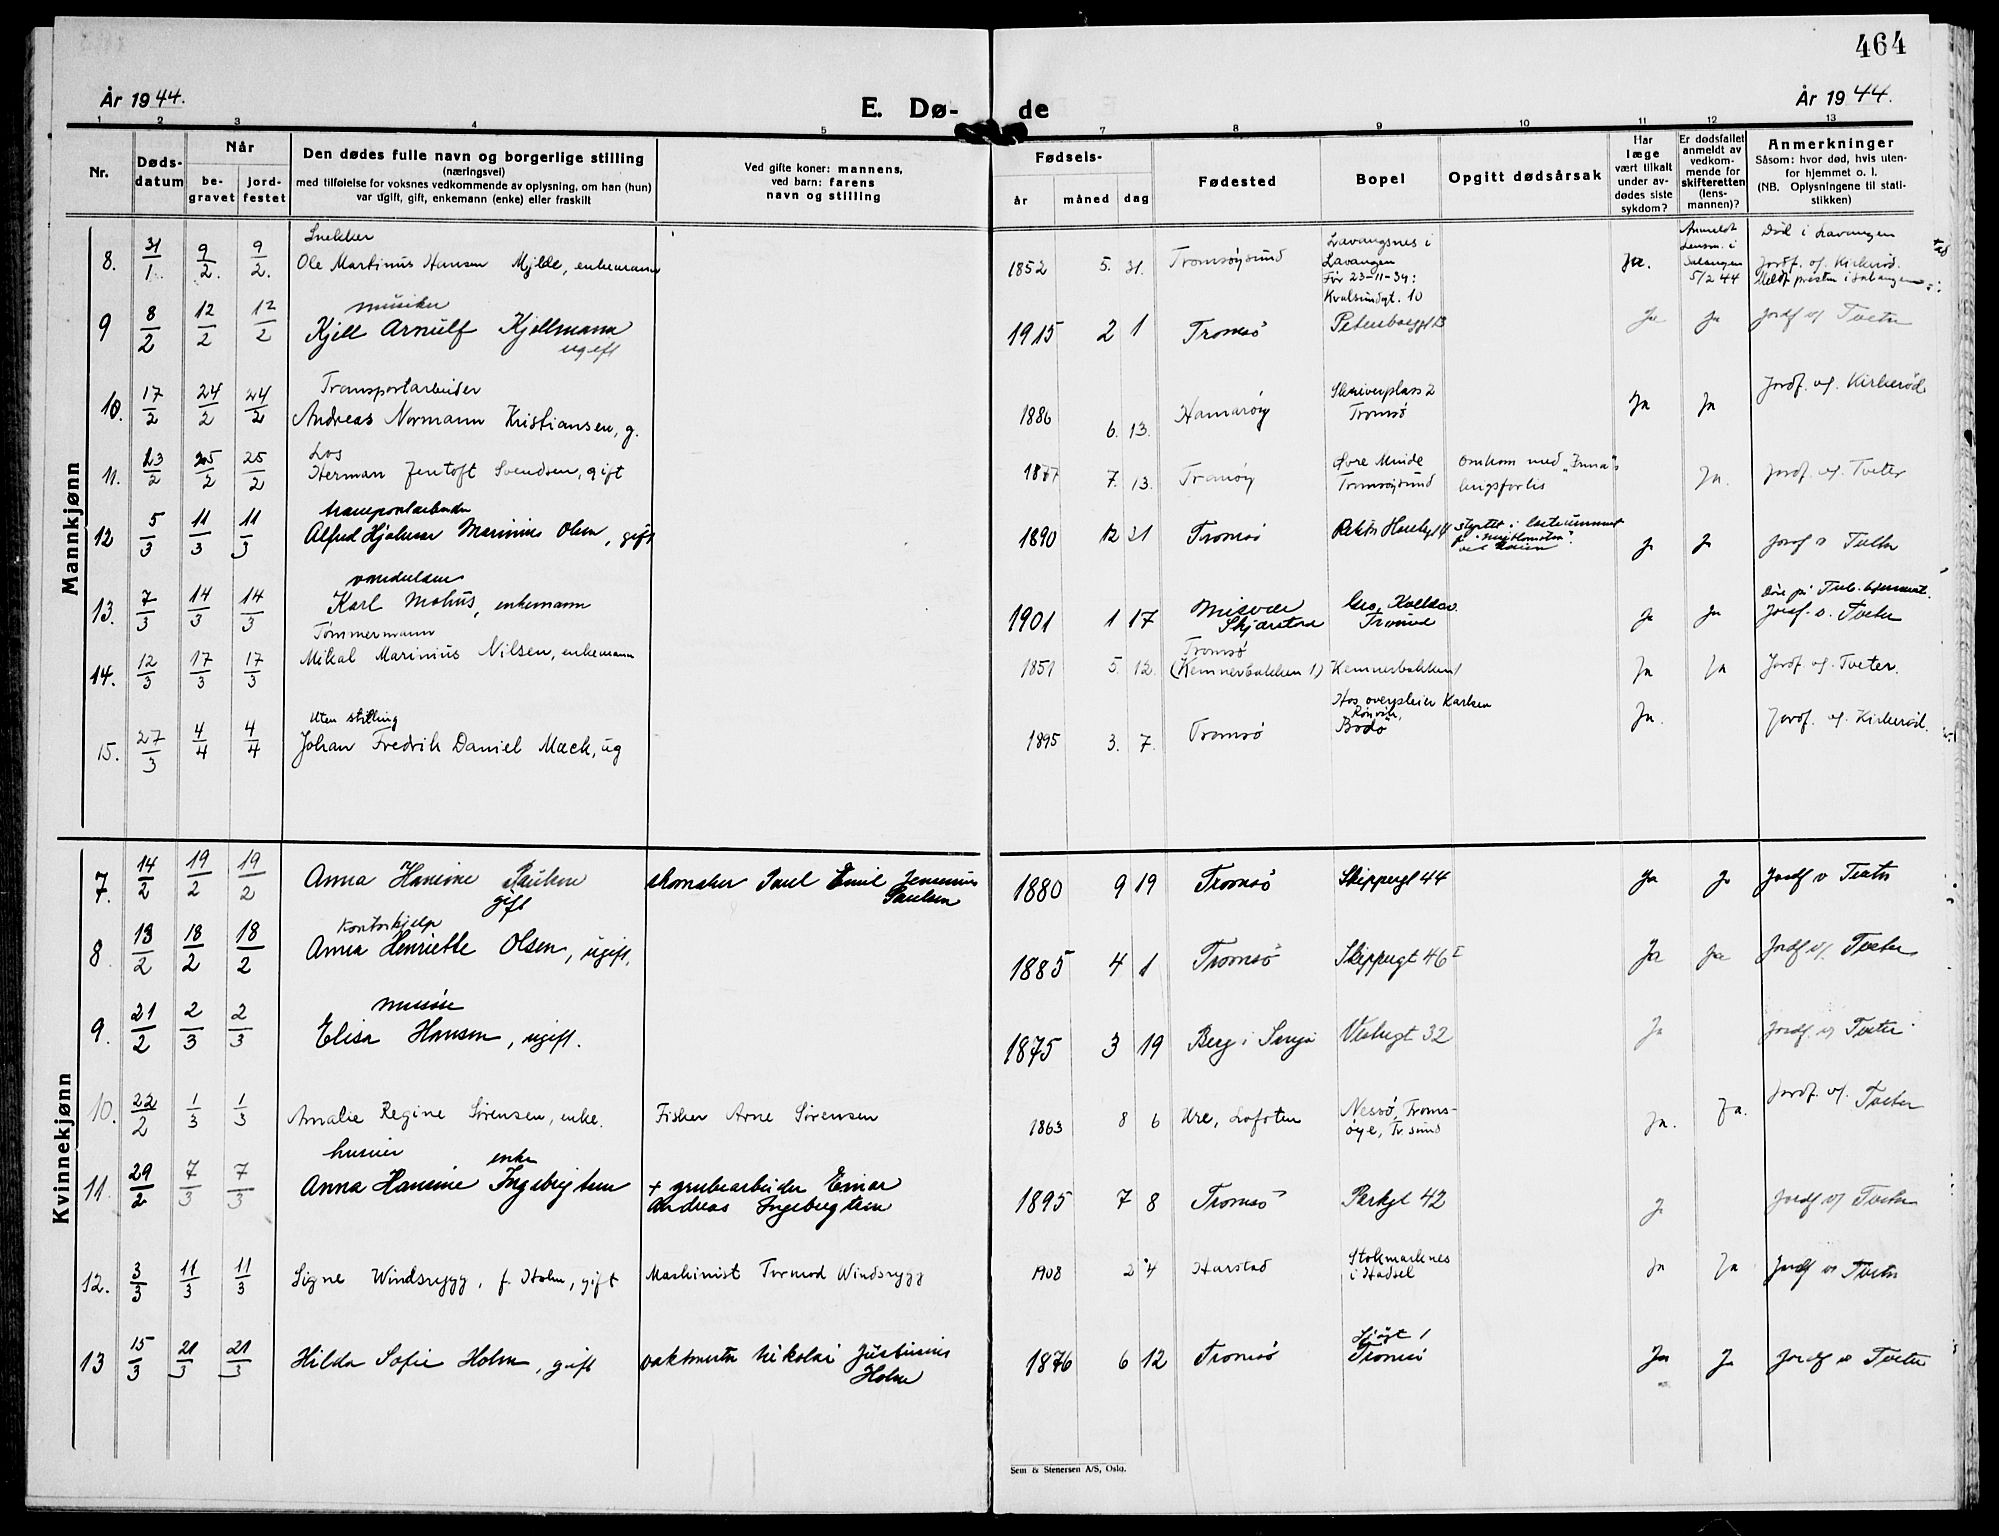 464
År 1944.
E. Dø-
de
År 1944.
1 2 3 4 5 7 8 9 10 11 12 13
Nr.
Døds-
datum
Når
be-
gravet
jord-
festet
Den dødes fulle navn og borgerlige stilling
(næringsvei)
med tilføielse for voksnes vedkommende av oplysning, om han (hun)
var ugift, gift, enkemann (enke) eller fraskilt
Ved gifte koner: mannens,
ved barn: farens
navn og stilling
Fødsels-
år måned dag
Fødested
Bopel
Opgitt dødsårsak
Har
læge
vært tilkalt
under av-
dødes siste
sykdom?
Er dødsfallet
anmeldt av
vedkom-
mende for
skifteretten
(lens-
mannen)?
Anmerkninger
Såsom: hvor død, hvis uten-
for hjemmet o. l.
(NB. Oplysningene til stati-
stikken)
Mannkjønn
Snekker
8. 31/1 9/2. 9/2. Ole Martinus Hansen Mjelde, enkemann 1852 5. 31. Tromsøysund
Lavangsnes i
Lavangen
Før 23-11-34:
Kvalsundgt. 10
Ja.
Anmeldt
Lensm. i
Salangen
5/2 44
Død i Lavangen
Jordf. af. Kirkerød.
musiker
9 8/2 12/2 12/2 Kjell Arnulf Kjellmann
ugift
1915 2 1 Tromsø Ja Ja Jordf v/ Tveter
Transportarbeider
10. 17/2 24/2 24/2 Andreas Normann Kristiansen, g. 1886 6. 13. Hamarøy
Skriverplass 2
Tromsø
Ja Ja Jordf. af. Kirkerød
Los
11. 23/2 25/2 25/2 Herman Jentoft Svendsen, gift 1877 7. 13. Tranøy
Øvre
Tromsøysund
omkom med
krigsforlis
Ja. Jordf. af. Tveter
transportarbeider
12 5/3 11/3 11/3 Alfred Hjalmar Marinius Olsen, gift 1890 12 31 Tromsø
styrtet i lasterummet
J J Jordf v Tveter
13. 7/3 14/3 14/3 Karl Mohus, enkemann 1901 1 17
Misvær
Skjerstad
Tromsø
Ja Ja
Jordf. v. Tveter
Tømmermann
14. 12/3 17/3 17/3 Mikal Marinius Nilsen, enkemann 1851 5. 12.
Tromsø
(Kemnerbakken 1) Kemnerbakken 1
Ja Ja Jordf. af. Tveter.
Uten stilling
15. 27/3 4/4 4/4 Johan Fredrik Daniel Mack, ug 1895 3. 7. Tromsø
Hos overpleier Karlsen
Rønvik,
Bodø
Ja. Jordf. af. Kirkerød.
Kvinnekjønn
7. 14/2 19/2 19/2 Anna Hansine Paulsen
gift
skomaker Paul Emil Jensenius
Paulsen
1880 9 19 Tromsø Skippergt 44 Ja Ja Jordf v Tveter
Kontorhjelp
8. 13/2 18/2 18/2 Anna Henriette Olsen, ugift. 1885 4 1 Tromsø Skippergt 46 I Ja Ja Jordf v/ Tveter
9. 21/2 2/3 2/3 Elisa Hansen, ugift. 1875 3 19 Berg i Senja Vestregt 32 Ja Jordf. v/ Tveter
10. 22/2 1/3 1/3 Amalie Regine Sørensen, enke. Fisker Arne Sørensen 1863 8 6 Ure, Lofoten
Nessø, Troms-
øye, Tr.sund
Ja. Ja. Jordf. af. Tveter
husvier enke
11. 29/2 7/3 7/3 Anna Hansine Ingebrigtsen + grubearbeider Einar
Andreas Ingebrigtsen
1895 7 8 Tromsø Parkgt 42 J Jordf v/ Tveter
12. 3/3 11/3 11/3 Signe Windsrygg, f. Holm, gift Maskinist Tormod Windsrygg 1908 2 4 Harstad
Stokmarknes
i Hadsel
Ja Ja Jordf v Tveter
13 15/3 21/3 21/3 Hilda Sofie Holm, gift vaktmester Nikolai Justinius
Holm
1876 6 12 Tromsø
Sjøgt 1
Tromsø
Ja Ja Jordf v Tveter
Sem & Stenersen A/S, Oslo.